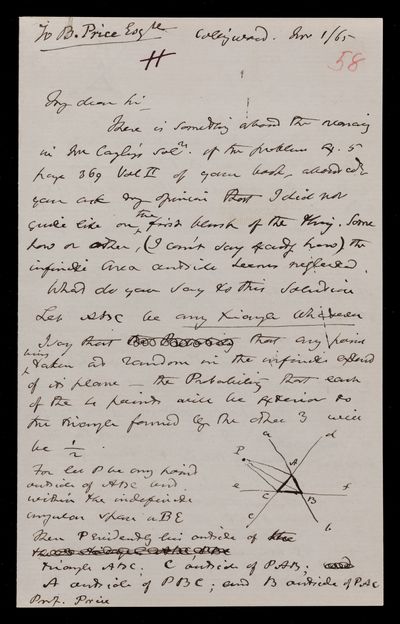 To B. Price Esqre
Collingwood. Nov 1/65
58
My dear Sir
There is something about the reasoning
in Mr Cayley's Soln. of the problem Q. 5
page 369 Vol II of your book, about wh
you ask my opinion that I did not
quite like on the first blush of the thing. Some
how or other, (I can't say exactly how) the
infinite area outside seems neglected.
What do you say to this Solution
Let ABC be any triangle Whatever
I say that that any point
being taken at random in the infinite extent
of its plane — the Probability that each
of the 4 points will be exterior to
the triangle formed by the other 3 will
be 1/2.
For let P be any point
outside of ABC and
within the indefinite
angular space aBE
Then P evidently lies outside of
triangle ABC; C outside of PAB;
A outside of PBC; and B outside of PAC
Prof. Price
a
d
P
A
e
C
B
f
c
b